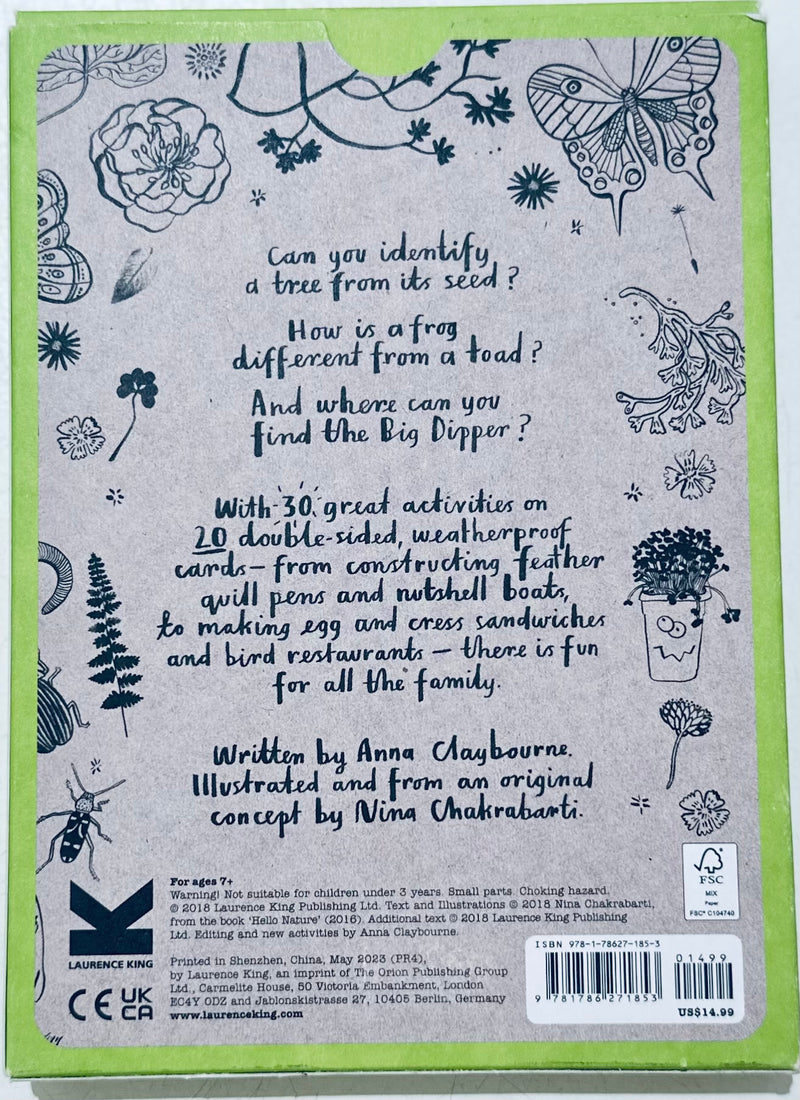 Can you identify
a tree from its seed?
How is a frog
different from a toad?
And where can you
find the Big Dipper?
With 30 great activities on
20 double-sided, weatherproof
cards — from constructing feather
quill pens and nutshell boats,
to making egg and cress sandwiches
and bird restaurants — there is fun
for all the family.
Written by Anna Claybourne.
Illustrated and from an original
concept by Nina Chakrabarti.
FSC
MIX
Paper
FSC® C104740
For ages 7+
Warning! Not suitable for children under 3 years. Small parts. Choking hazard.
© 2018 Laurence King Publishing Ltd. Text and Illustrations © 2018 Nina Chakrabarti,
from the book 'Hello Nature' (2016). Additional text © 2018 Laurence King Publishing
Ltd. Editing and new activities by Anna Claybourne.
LAURENCE KING
CE UK
CA
Printed in Shenzhen, China, May 2023 (PR4),
by Laurence King, an imprint of The Orion Publishing Group
Ltd., Carmelite House, 50 Victoria Embankment, London
EC4Y 0DZ and Jablonskistrasse 27, 10405 Berlin, Germany
www.laurenceking.com
ISBN 978-1-78627-185-3
01499
9 781786 271853
US$14.99